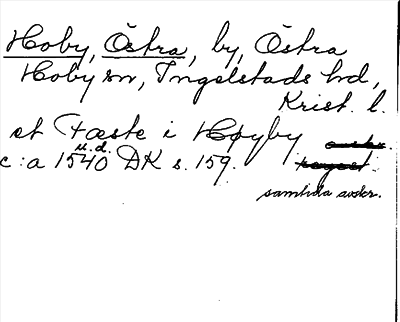 Hoby, Östra, by, Östra
Hoby sn, Ingelstads hd,
Krist. l.
et Fæste i Høyby
u.d.
c:a 1540 DK s. 159.
samtida avskr.